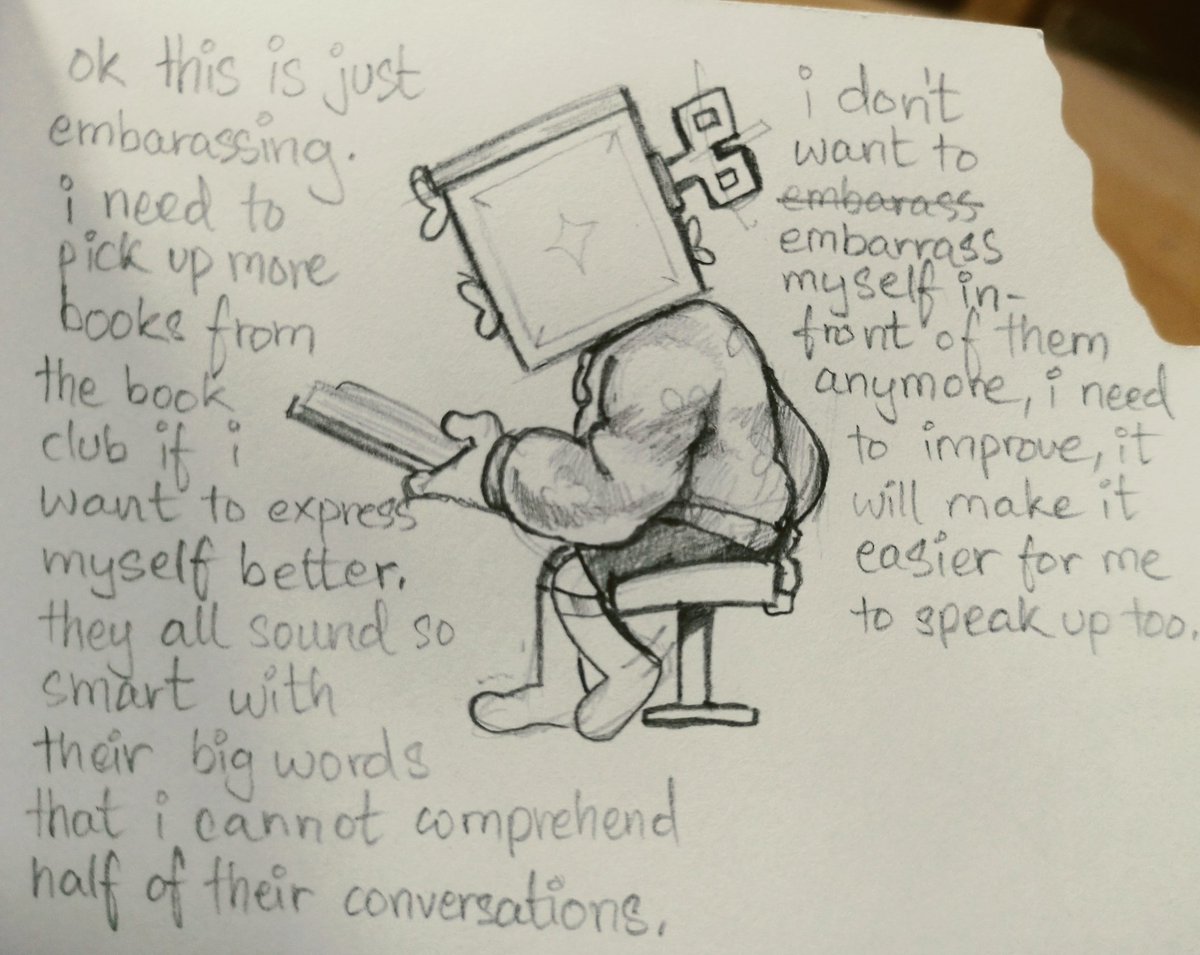 ok this is just
embarassing.
i need to
pick up more
books from
the book
club if i
want to express
myself better.
they all sound so
smart with
their big words
that i cannot comprehend
half of their conversations.
i don't
want to
embarass
embarrass
myself in-
front of them
anymore, i need
to improve, it
will make it
easier for me
to speak up too.